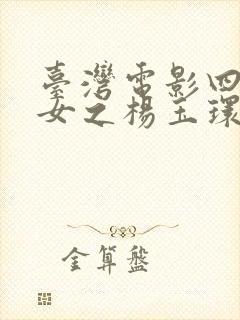 臺灣電影四
女之楊玉環
金算盤